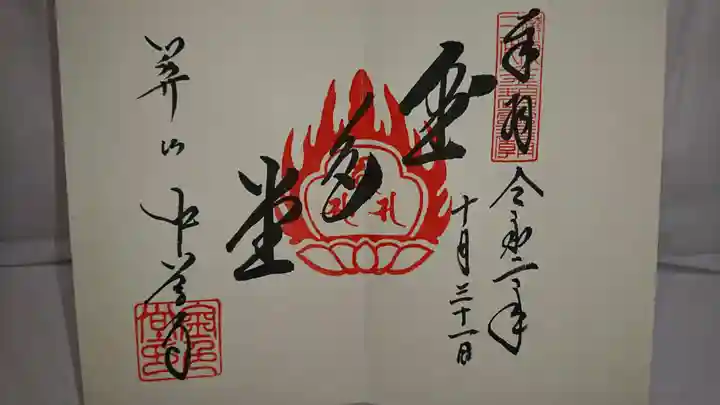 奉拝
令和二年
十月三十一日
金色堂
関山
中尊寺